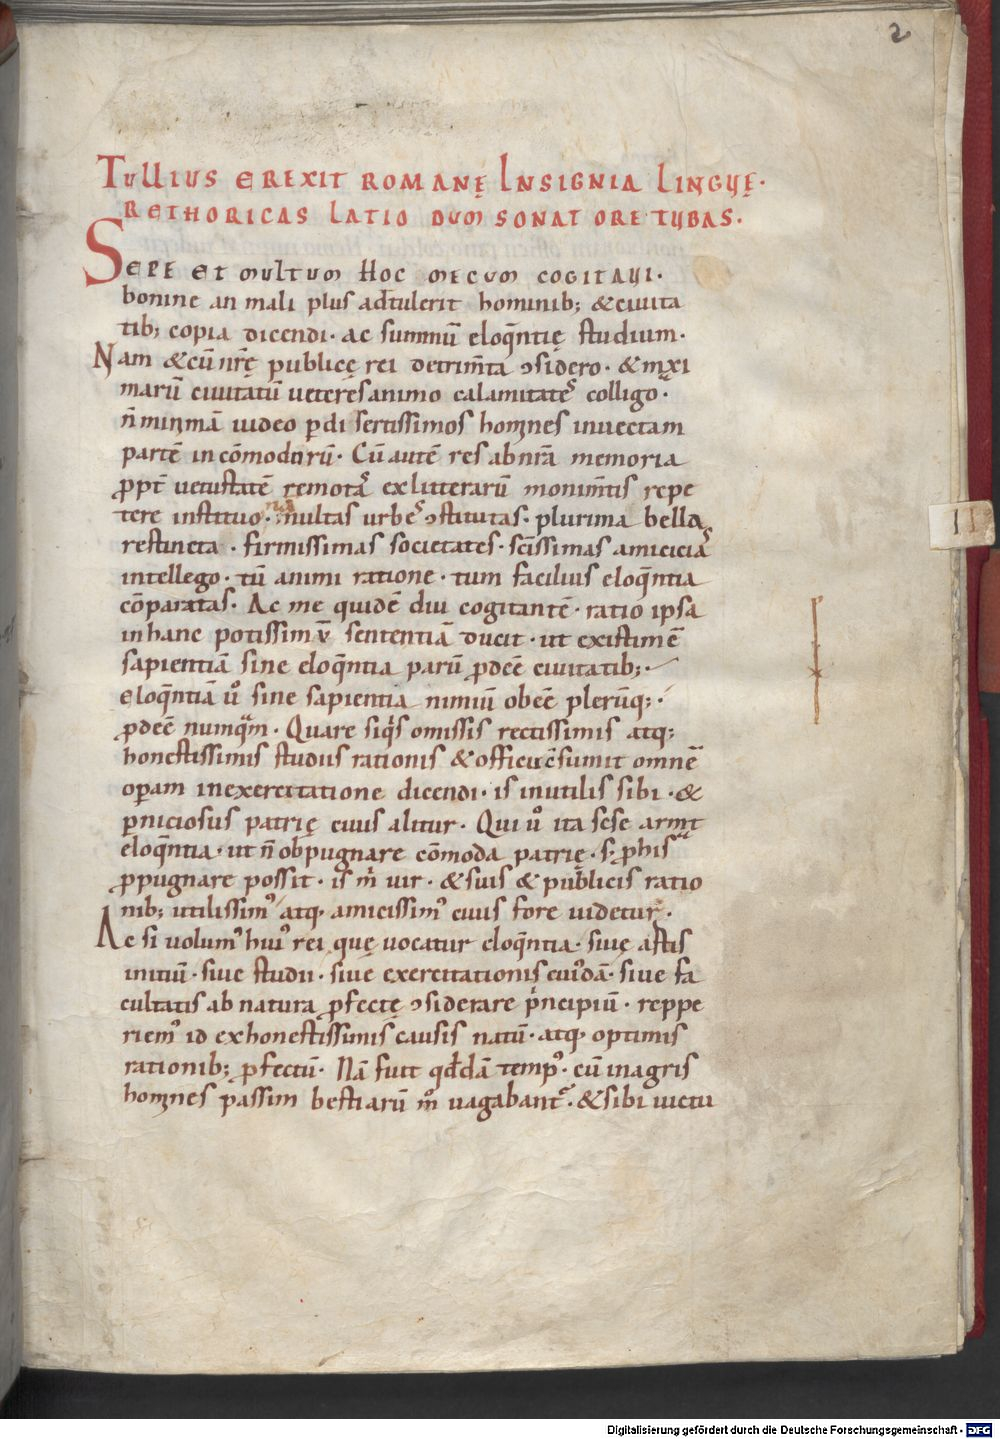 2
TULLIUS EREXIT ROMANĘ INSIGNIA LINGUĘ·
RETHORICAS LATIO DUM SONAT ORE TUBAS·
SEPE ET MULTUM HOC MECUM COGITAUI·
bonine an mali plus adtulerit hominib; & ciuita
tib; copia dicendi· ac summū eloq̄ntię studium·
Nam & cū nr̄ę publicę rei detrim̄ta ↄsidero· & mxi
marū ciuitatū ueteres animo calamitatēs colligo·
n̄ minimā uideo ꝑdisertissimos homines inuectam
partē incōmodorū· Cū autē res ab nr̄a memoria
ꝓpt̄ uetustatē remotas ex litterarū monim̄tis repe
tere instituo· multas urbes ↄstitutas· plurima bella
restincta· firmissimas societates· sc̄issimas amicicias
intellego· tū animi ratione· tum facilius eloq̄ntia
cōparatas· Ac me quidē diu cogitantē· ratio ipsa
in hanc potissimū sententiā ducit· ut existimē
sapientiā sine eloq̄ntia parū ꝓdeē ciuitatib;·
eloq̄ntiā uͦ sine sapientia nimiū obeē plerūq;·
ꝓdeē numquā· Quare siqis omissis rectissimis atq;
honestissimis studiis rationis & officii ↄsumit omnē
oꝑam in exercitatione dicendi· is inutilis sibi· &
ꝑniciosus patrię ciuis alitur· Qui uͦ ita sese armt
eloq̄ntia· ut n̄ obpugnare cōmoda patrię· s; ꝓ his
ꝓpugnare possit· is m̄ uir· & suis & publicis ratio
nib; utilissim᾿ atq· amicissim᾿ ciuis fore uidetur·
Ac si uolum᾿ hui᾿ rei quę uocatur eloq̄ntia· siue artis
initiū· siue studii· siue exercitationis cui᾿dā· siue fa
cultatis ab natura ꝓfectę ↄsiderare pͥncipiū· reppe
riem᾿ id ex honestissimis causis natū· atq· optimis
rationib; ꝓfectū· Nā fuit qd̄dā temp᾿· cū in agris
homines passim bestiarū mͦ uagabant᾿· & sibi uictu
Digitalisierung gefördert durch die Deutsche Forschungsgemeinschaft - DFG